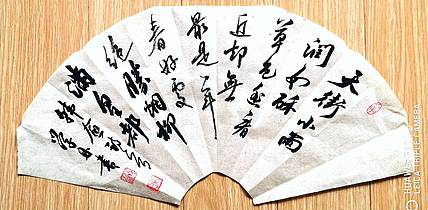 天街小雨
润如酥
草色遥看
近却无
最是一年
春好处
绝胜烟柳
满皇都
韩愈
LEICA TRIPLE CAMERA